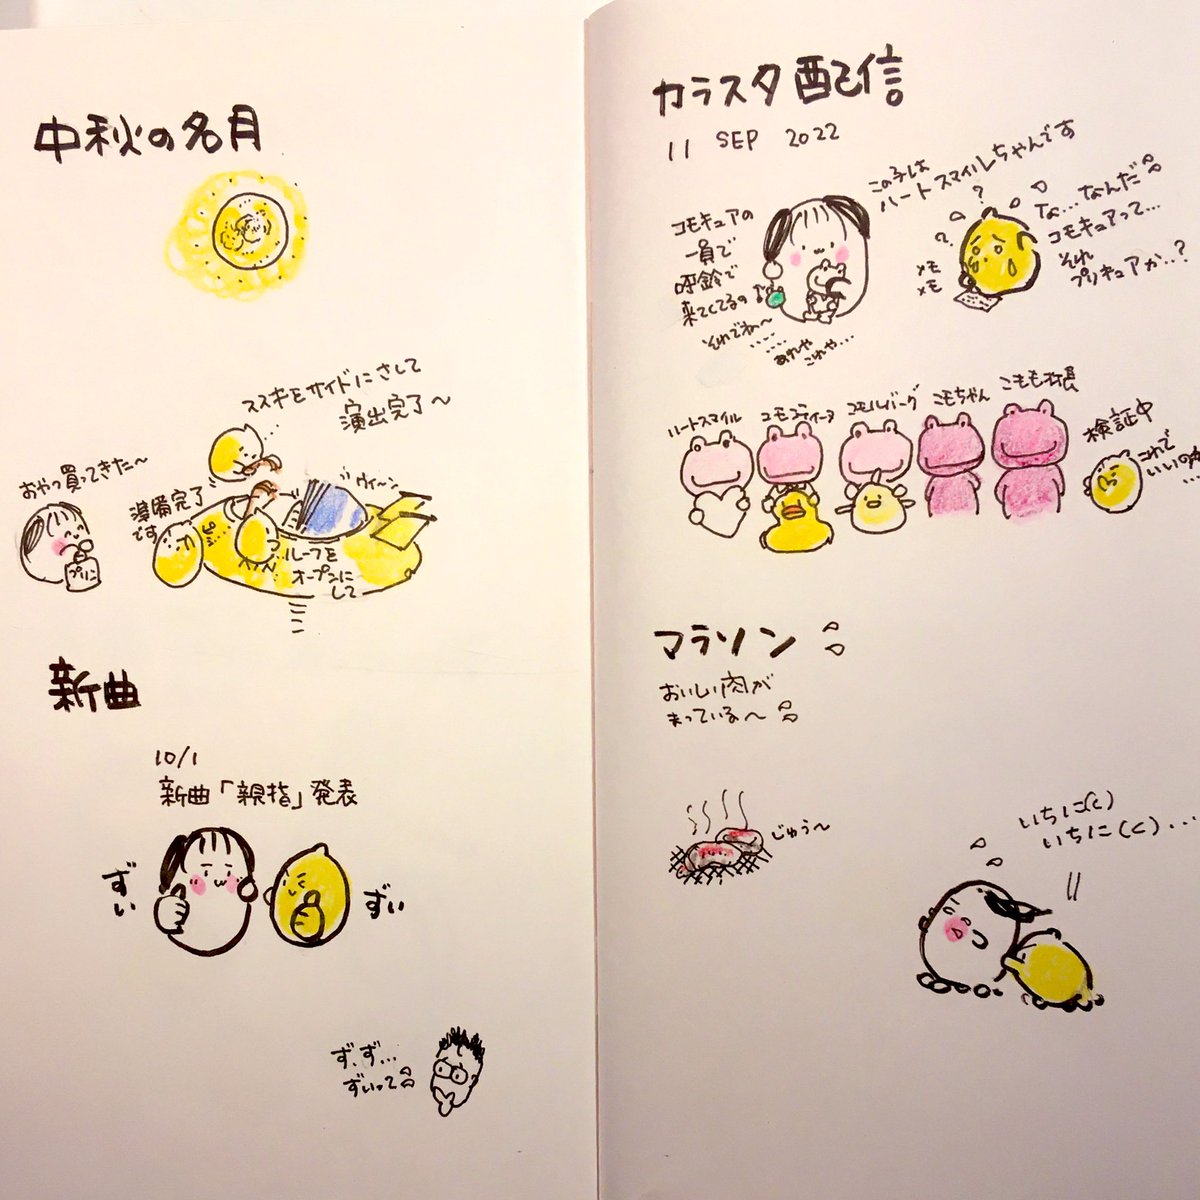 中秋の名月
ススキをサイドにさして
演出完了〜
おやつ買ってきた〜
プリン
準備完了
です
ピ
ウィーン
ルーフを
オープンに
して
新曲
10/1
新曲「親指」発表
ずい
ずい
ず、ず…
ずいって
カラスタ配信
11 SEP 2022
コモキュアの
一員で
呼鈴で
来てくてるの
それでね〜
あれや
これや…
この子は
ハートスマイルちゃんです
?
?
メモ
メモ
な…なんだ
コモキュアって…
それ
プリキュアか…?
ハートスマイル
コモコティーヌ
コモルバーグ
こもちゃん
こもも社長
検証中
これで
いいのか
…
マラソン
おいしい肉が
まっている〜
じゅう〜
いちに(に)
いちに(に)…